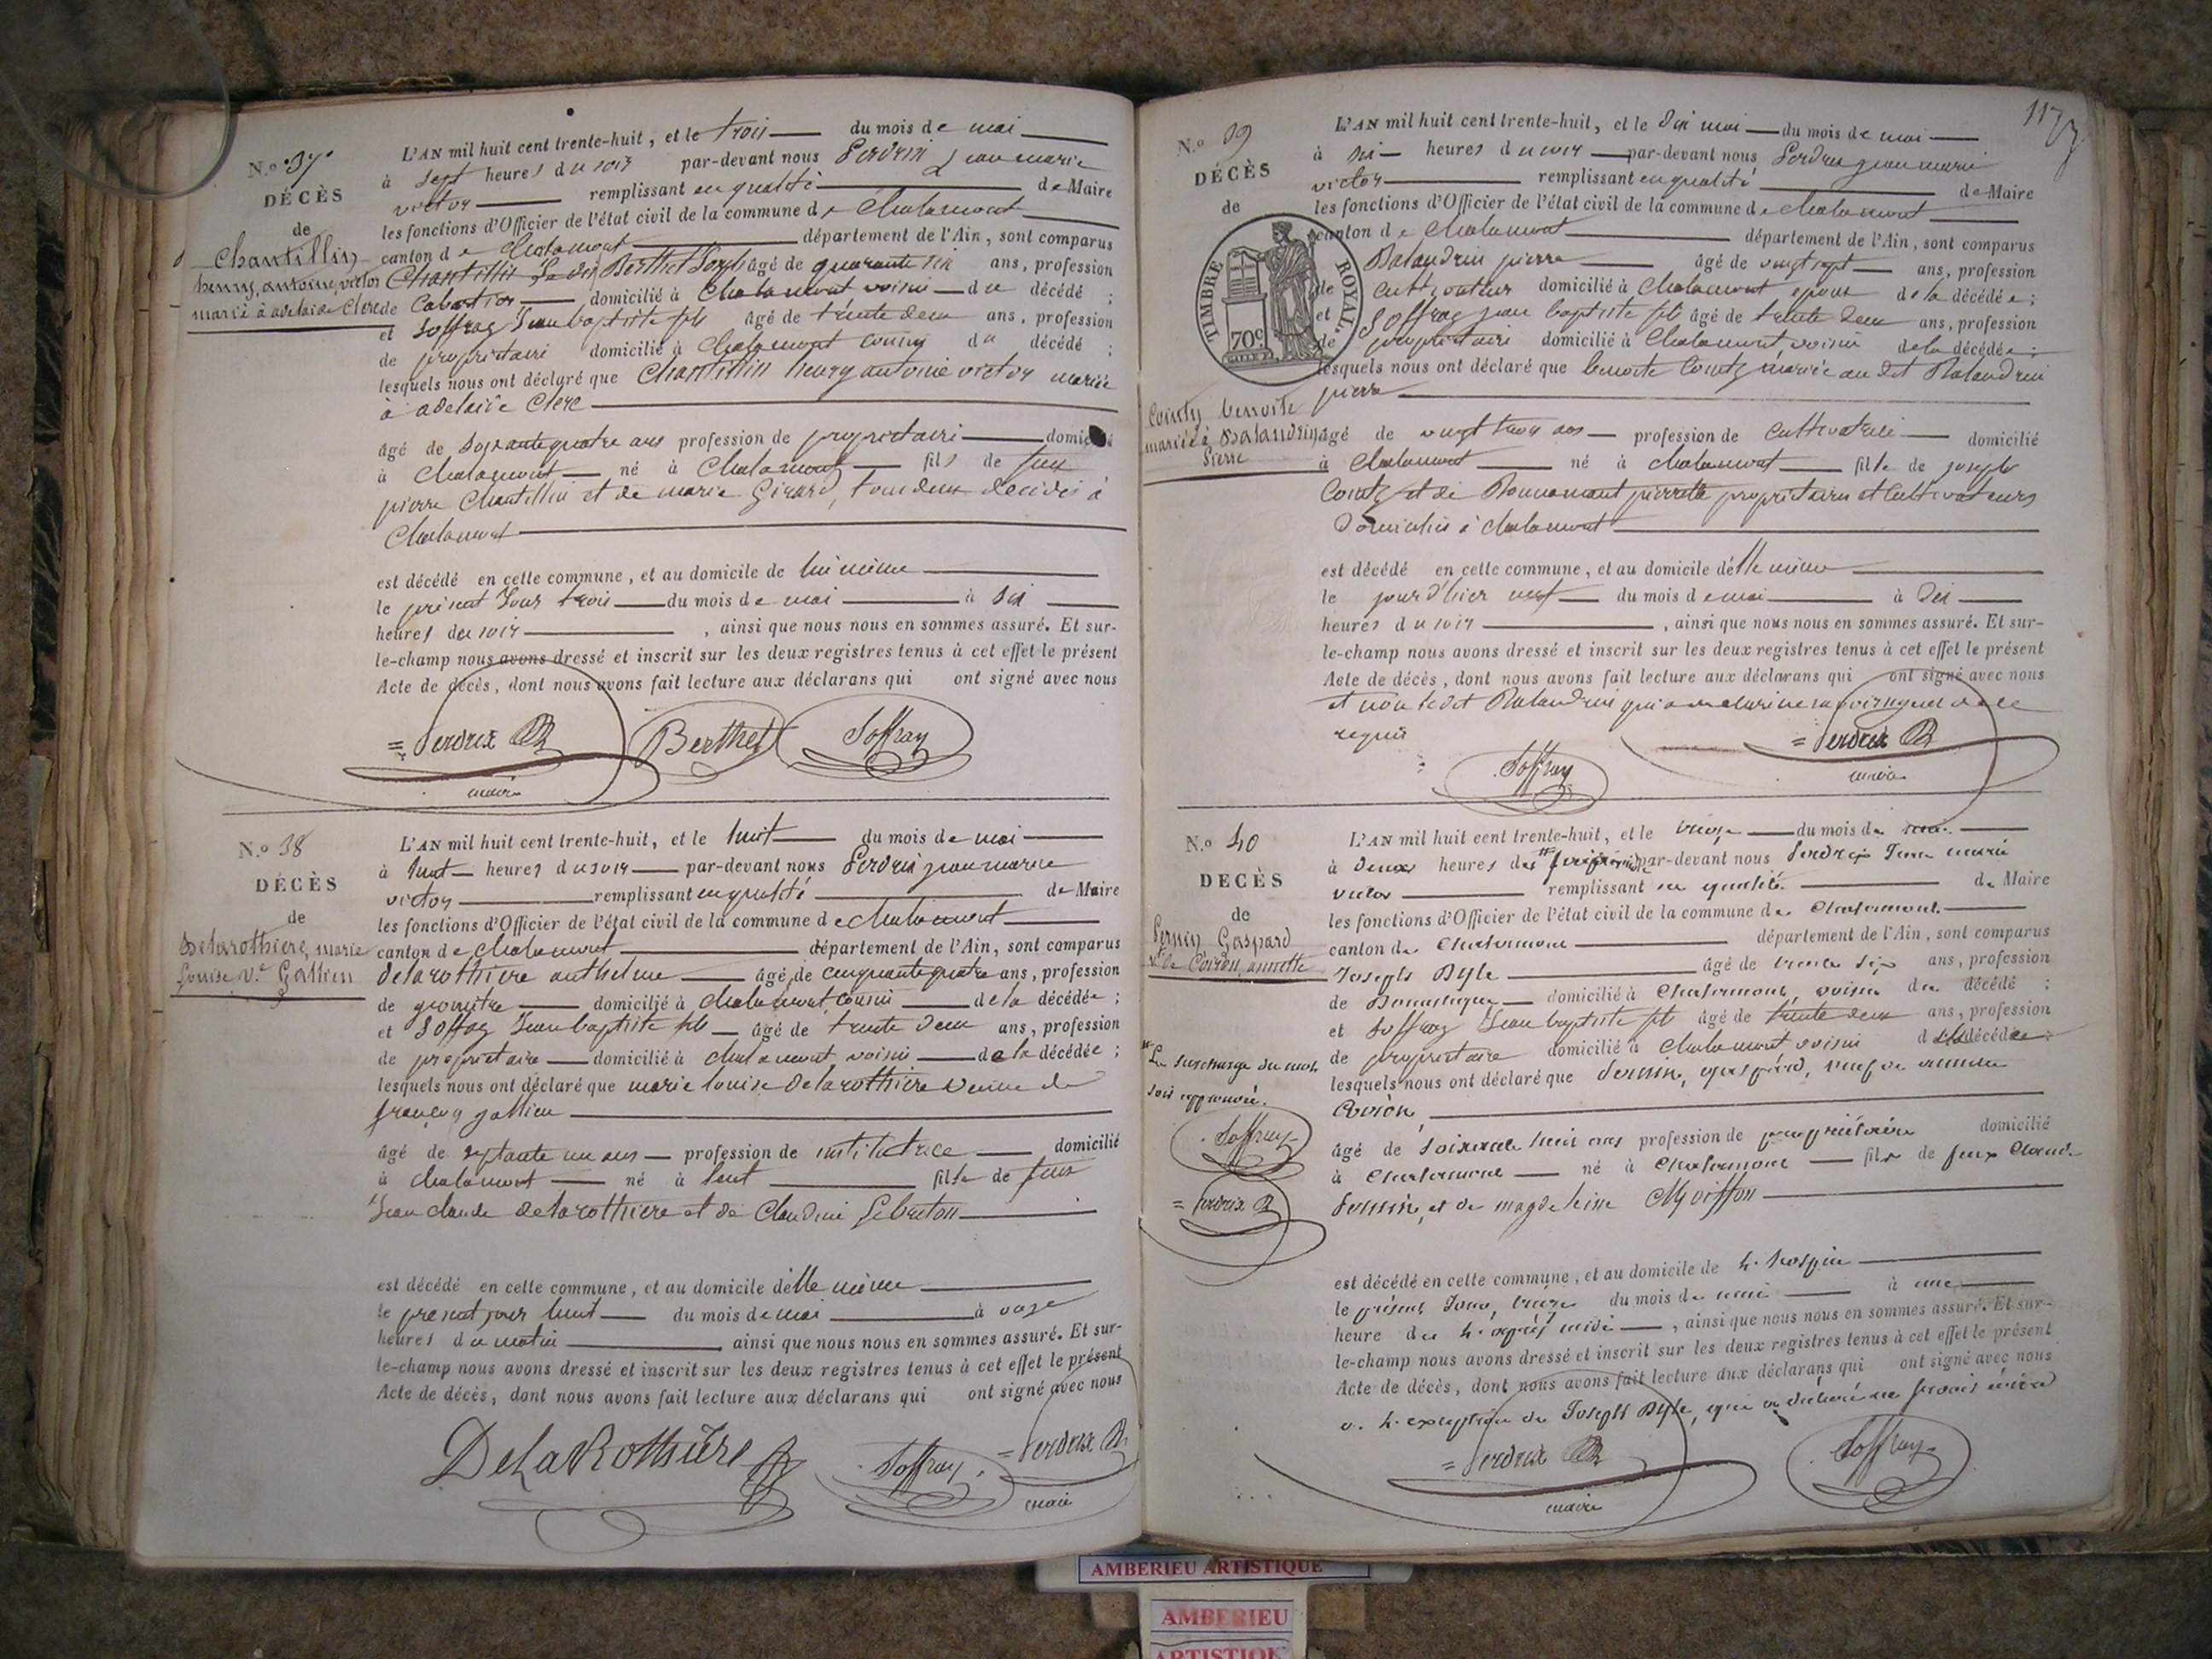 N.º 37
DÉCÈS
de
Chantillin
henry, antoine, victor
marié à adelaide Clerc
L'AN mil huit cent trente-huit, et le trois du mois de mai
à sept heures du soir par-devant nous Perdrix Jean marie
victor remplissant en qualité de Maire
les fonctions d'Officier de l'état civil de la commune de Chalamont
canton de Chalamont département de l'Ain, sont comparus
Berthet âgé de quarante six ans, profession
de Cabartier domicilié à Chalamont voisin du décédé ;
et Soffray Jean baptiste fils âgé de trente deux ans, profession
de propriétaire domicilié à Chalamont cousin du décédé ;
lesquels nous ont déclaré que Chantillin henry antoine victor mariée
à adelaide Clerc
âgé de soixante quatre ans profession de propriétaire domicilié
à Chalamont né à Chalamont fils de feu
pierre Chantillin et de marie Girard, tous deux décédés à
Chalamont
est décédé en cette commune, et au domicile de lui même
le présent Jour trois du mois de mai à six
heures du soir , ainsi que nous nous en sommes assuré. Et sur-
le-champ nous avons dressé et inscrit sur les deux registres tenus à cet effet le présent
Acte de décès, dont nous avons fait lecture aux déclarans qui ont signé avec nous
= Perdrix Berthet Soffray
maire
N.º 38
DÉCÈS
de
Delarothiere, marie
Louise v.e Gallien
L'AN mil huit cent trente-huit, et le huit du mois de mai
à huit heures du soir par-devant nous Perdrix jean marie
victor remplissant en qualité de Maire
les fonctions d'Officier de l'état civil de la commune de chalamont
canton de Chalamont département de l'Ain, sont comparus
delarothiere anthelme âgé de cinquante quatre ans, profession
de géomètre domicilié à Chalamont, cousin de la décédée ;
et Soffray Jean baptiste fils âgé de trente deux ans, profession
de propriétaire domicilié à chalamont voisin de la décédée ;
lesquels nous ont déclaré que marie louise delarothiere veuve de
françois gallien
âgé de septante un ans profession de institutrice domicilié
à chalamont né à fille de feux
Jean claude delarothiere et de Claudine Lebreton
est décédé en cette commune, et au domicile d'elle même
le présent jour huit du mois de mai à onze
heures du matin , ainsi que nous nous en sommes assuré. Et sur-
le-champ nous avons dressé et inscrit sur les deux registres tenus à cet effet le présent
Acte de décès, dont nous avons fait lecture aux déclarans qui ont signé avec nous
DeLaRothière Soffray = Perdrix
maire
117
N.º 39
DÉCÈS
de
TIMBRE ROYAL.
70c.
benoite
mariée à Balandrin
Pierre
L'AN mil huit cent trente-huit, et le dix mai du mois de mai
à six heures du soir par-devant nous Perdrix jean marie
victor remplissant en qualité de Maire
les fonctions d'Officier de l'état civil de la commune de chalamont
canton de Chalamont département de l'Ain, sont comparus
Balandrin pierre âgé de vingt sept ans, profession
de cultivateur domicilié à Chalamont époux de la décédée ;
et Soffray jean baptiste fils âgé de trente deux ans, profession
de propriétaire domicilié à Chalamont voisin de la décédée ;
lesquels nous ont déclaré que benoite mariée au dit Balandrin
pierre
âgé de vingt trois ans profession de cultivatrice domicilié
à Chalamont né à chalamont fille de joseph
et de pierrette propriétaires et cultivateurs
domiciliés à chalamont
est décédé en cette commune, et au domicile d'elle même
le jour d'hier neuf du mois de mai à dix
heures du soir , ainsi que nous nous en sommes assuré. Et sur-
le-champ nous avons dressé et inscrit sur les deux registres tenus à cet effet le présent
Acte de décès, dont nous avons fait lecture aux déclarans qui ont signé avec nous
et non ledit Balandrin qui a déclaré ne savoir signer de ce
requis
Soffray = Perdrix
maire
N.º 40
DÉCÈS
de
Gaspard
v.f de Coiron, annette
La surcharge du mot
soit approuvée.
Soffray
= Perdrix
L'AN mil huit cent trente-huit, et le treize du mois de mai
à deux heures de par-devant nous Perdrix Jean marie
victor remplissant en qualité de Maire
les fonctions d'Officier de l'état civil de la commune de Chalamont
canton de Chalamont département de l'Ain, sont comparus
Joseph âgé de trente six ans, profession
de Domestique domicilié à Chalamont, voisin du décédé ;
et Soffray Jean baptiste fils âgé de trente deux ans, profession
de propriétaire domicilié à Chalamont voisin décédé ;
lesquels nous ont déclaré que gaspard, veuf de annette
Coiron,
âgé de soixante huit ans profession de propriétaire domicilié
à Chalamont né à Chalamont fils de feux Claude
et de magdeleine
est décédé en cette commune, et au domicile de l'hospice
le présent Jour, treize du mois de mai à une
heure de l'après midi , ainsi que nous nous en sommes assuré. Et sur-
le-champ nous avons dressé et inscrit sur les deux registres tenus à cet effet le présent
Acte de décès, dont nous avons fait lecture aux déclarans qui ont signé avec nous
à l'exception de Joseph qui a déclaré ne savoir écrire
= Perdrix Soffray
maire
AMBERIEU ARTISTIQUE
AMBERIEU
ARTISTIQUE